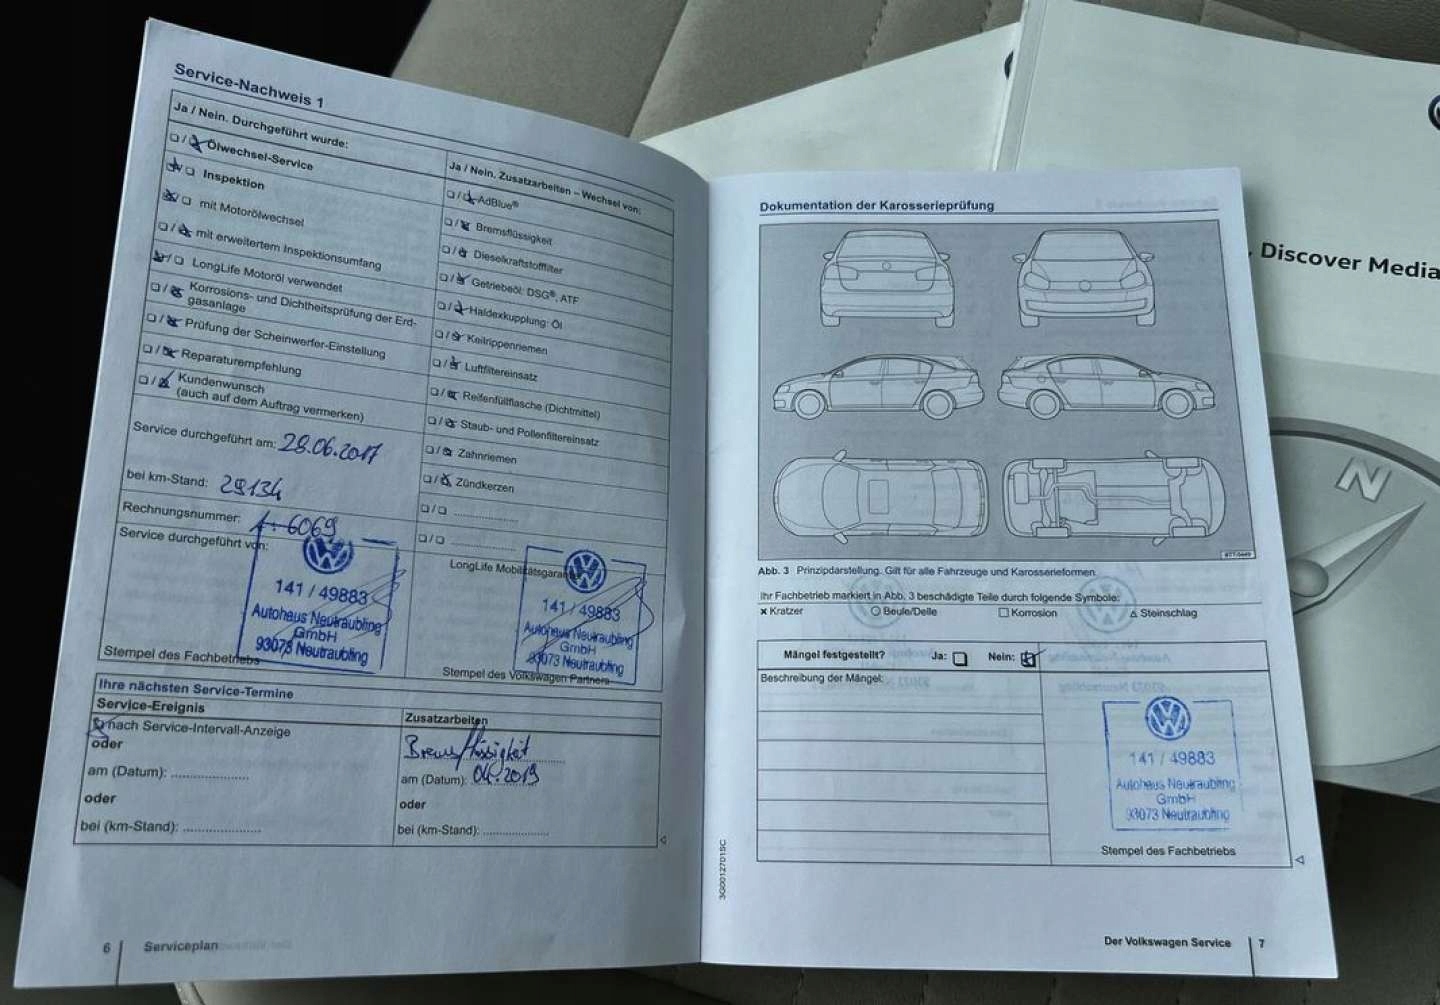 Service-Nachweis 1
Ja / Nein. Durchgeführt wurde:
Ölwechsel-Service
Inspektion
mit Motorölwechsel
mit erweitertem Inspektionsumfang
LongLife Motoröl verwendet
Korrosions- und Dichtheitsprüfung der Erd-
gasanlage
Prüfung der Scheinwerfer-Einstellung
Reparaturempfehlung
Kundenwunsch
(auch auf dem Auftrag vermerken)
Service durchgeführt am: 29.06.2017
bei km-Stand: 29134
Rechnungsnummer: 6069
Service durchgeführt von:
141 / 49883
Autohaus Neutraubling
GmbH
93073 Neutraubling
Stempel des Fachbetriebs
Ja / Nein. Zusatzarbeiten – Wechsel von:
AdBlue®
Bremsflüssigkeit
Dieselkraftstofffilter
Getriebeöl: DSG®, ATF
Haldexkupplung: Öl
Keilrippenriemen
Luftfiltereinsatz
Reifenfüllflasche (Dichtmittel)
Staub- und Pollenfiltereinsatz
Zahnriemen
Zündkerzen
LongLife Mobilitätsgarantie
141 / 49883
Autohaus Neutraubling
GmbH
93073 Neutraubling
Stempel des Volkswagen Partners
Ihre nächsten Service-Termine
Service-Ereignis
nach Service-Intervall-Anzeige
oder
am (Datum):
oder
bei (km-Stand):
Zusatzarbeiten
Bremsflüssigkeit
am (Datum): 04.2019
oder
bei (km-Stand):
6 Serviceplan
Dokumentation der Karosserieprüfung
Abb. 3 Prinzipdarstellung. Gilt für alle Fahrzeuge und Karosserieformen.
Ihr Fachbetrieb markiert in Abb. 3 beschädigte Teile durch folgende Symbole:
Kratzer Beule/Delle Korrosion Steinschlag
Mängel festgestellt? Ja: Nein:
Beschreibung der Mängel:
141 / 49883
Autohaus Neutraubling
GmbH
93073 Neutraubling
Stempel des Fachbetriebs
3G0012701SC
Der Volkswagen Service 7
Discover Media
N